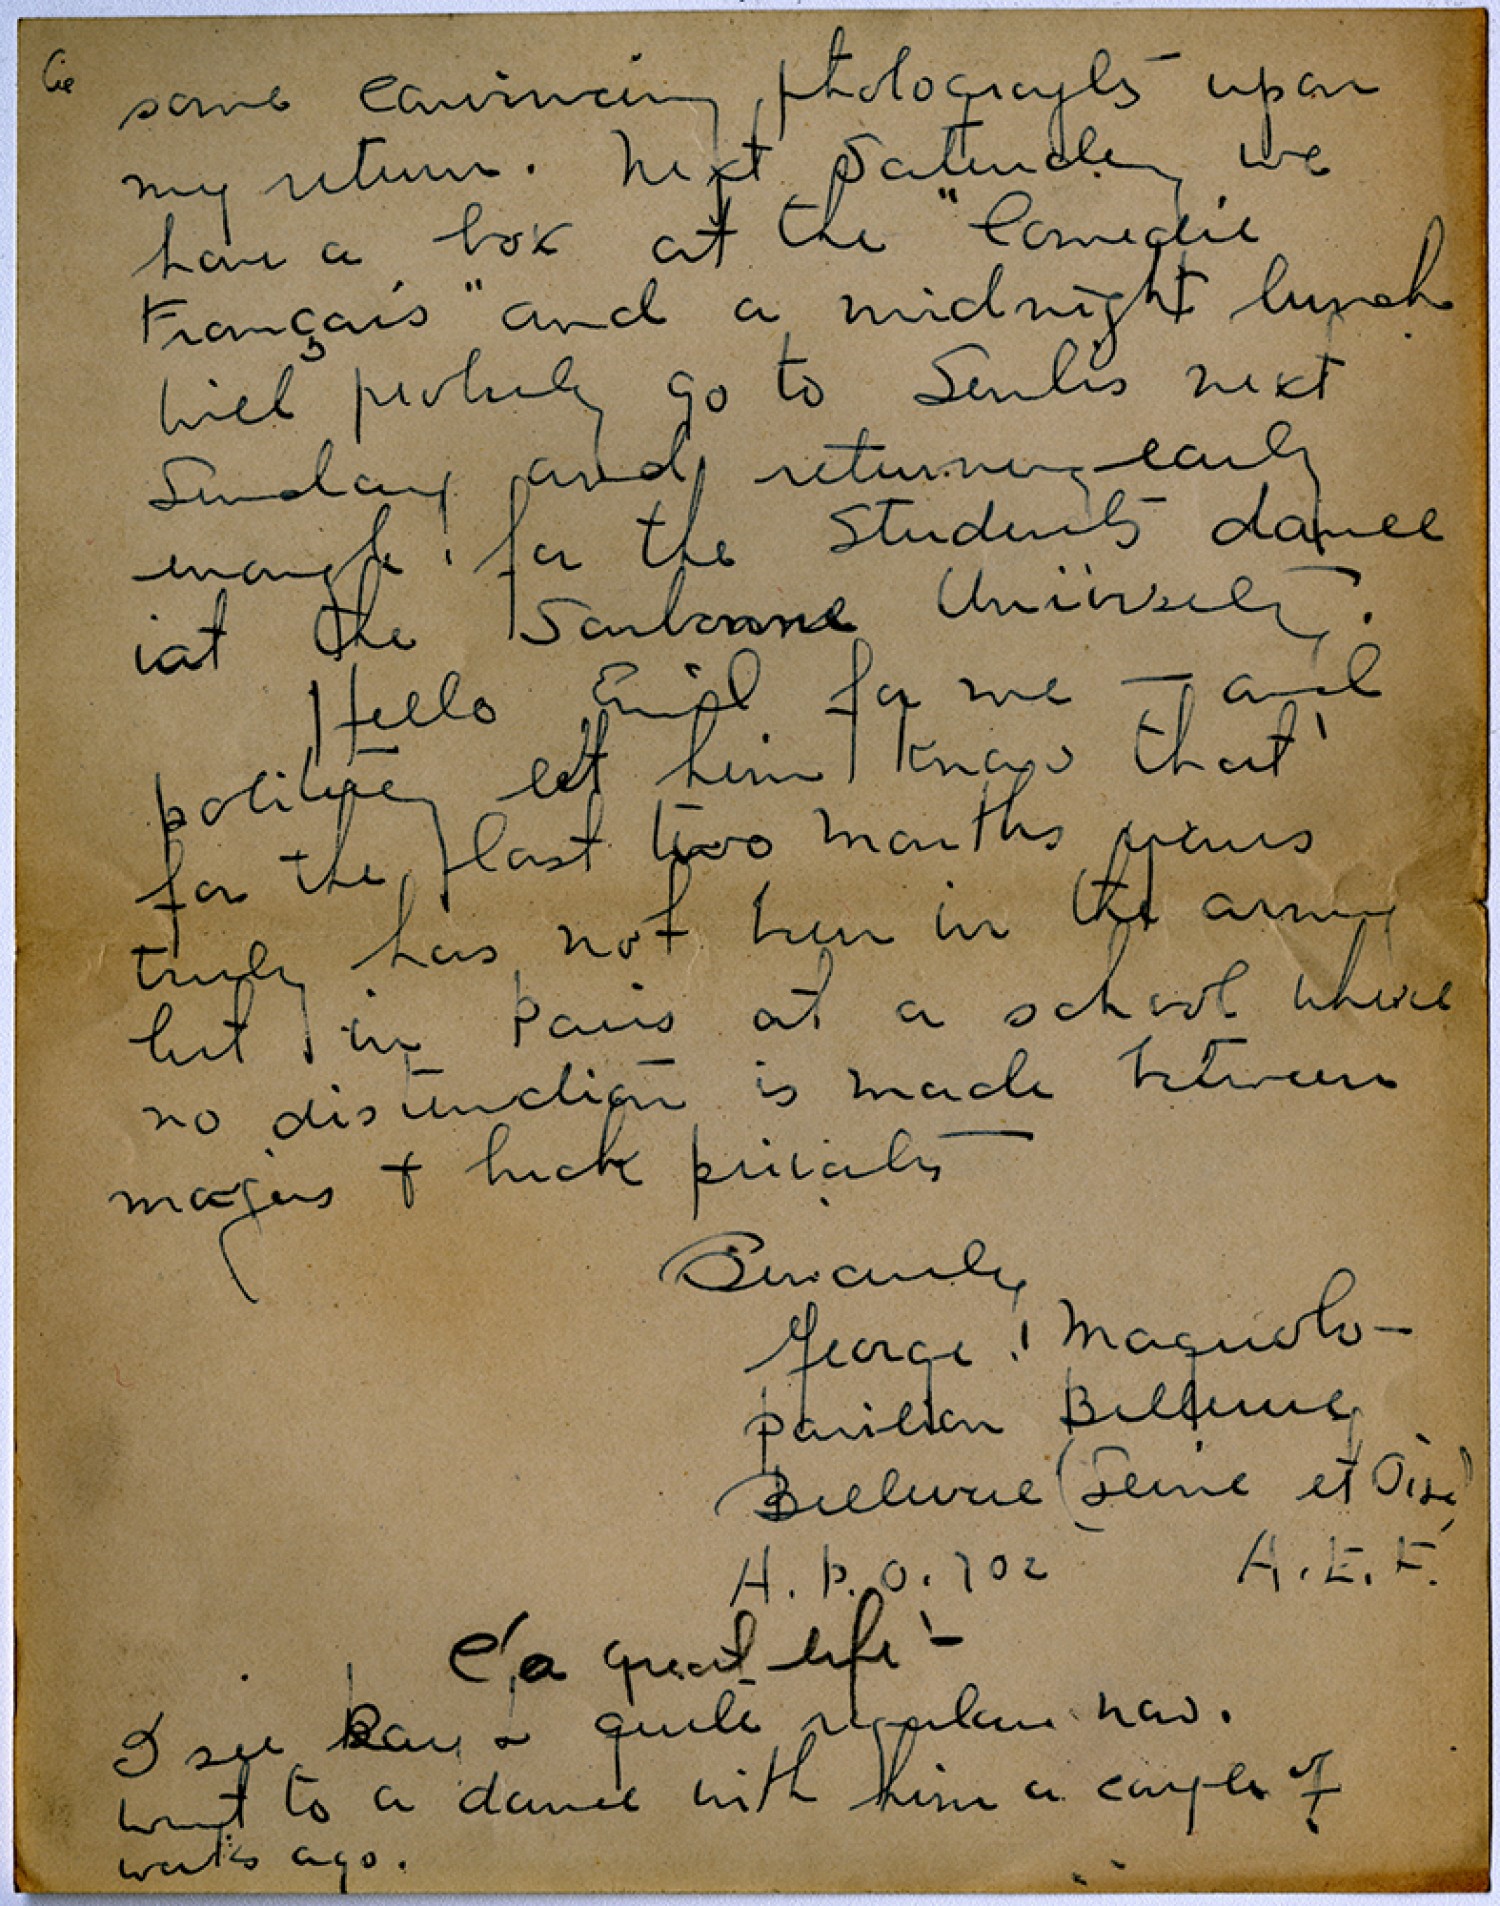 some convincing photographs upon
my return. Next Saturday we
have a box at the "Comedie
Français" and a midnight lunch
will probably go to Senlis next
Sunday and returning early
enough for the Students dance
at the Sarbonne University.
Hello Emil for me — and
politely let him know that
for the last two months yours
truly has not been in the army
but in Paris at a school where
no distinction is made between
majors + buck privates
Sincerely
George
Pavilion Bellevue
Bellevue (Seine et Oise)
A.P.O. 702 A.E.F.
C'a great life! —
I see Ray quite regular now.
went to a dance with him a couple of
weeks ago.